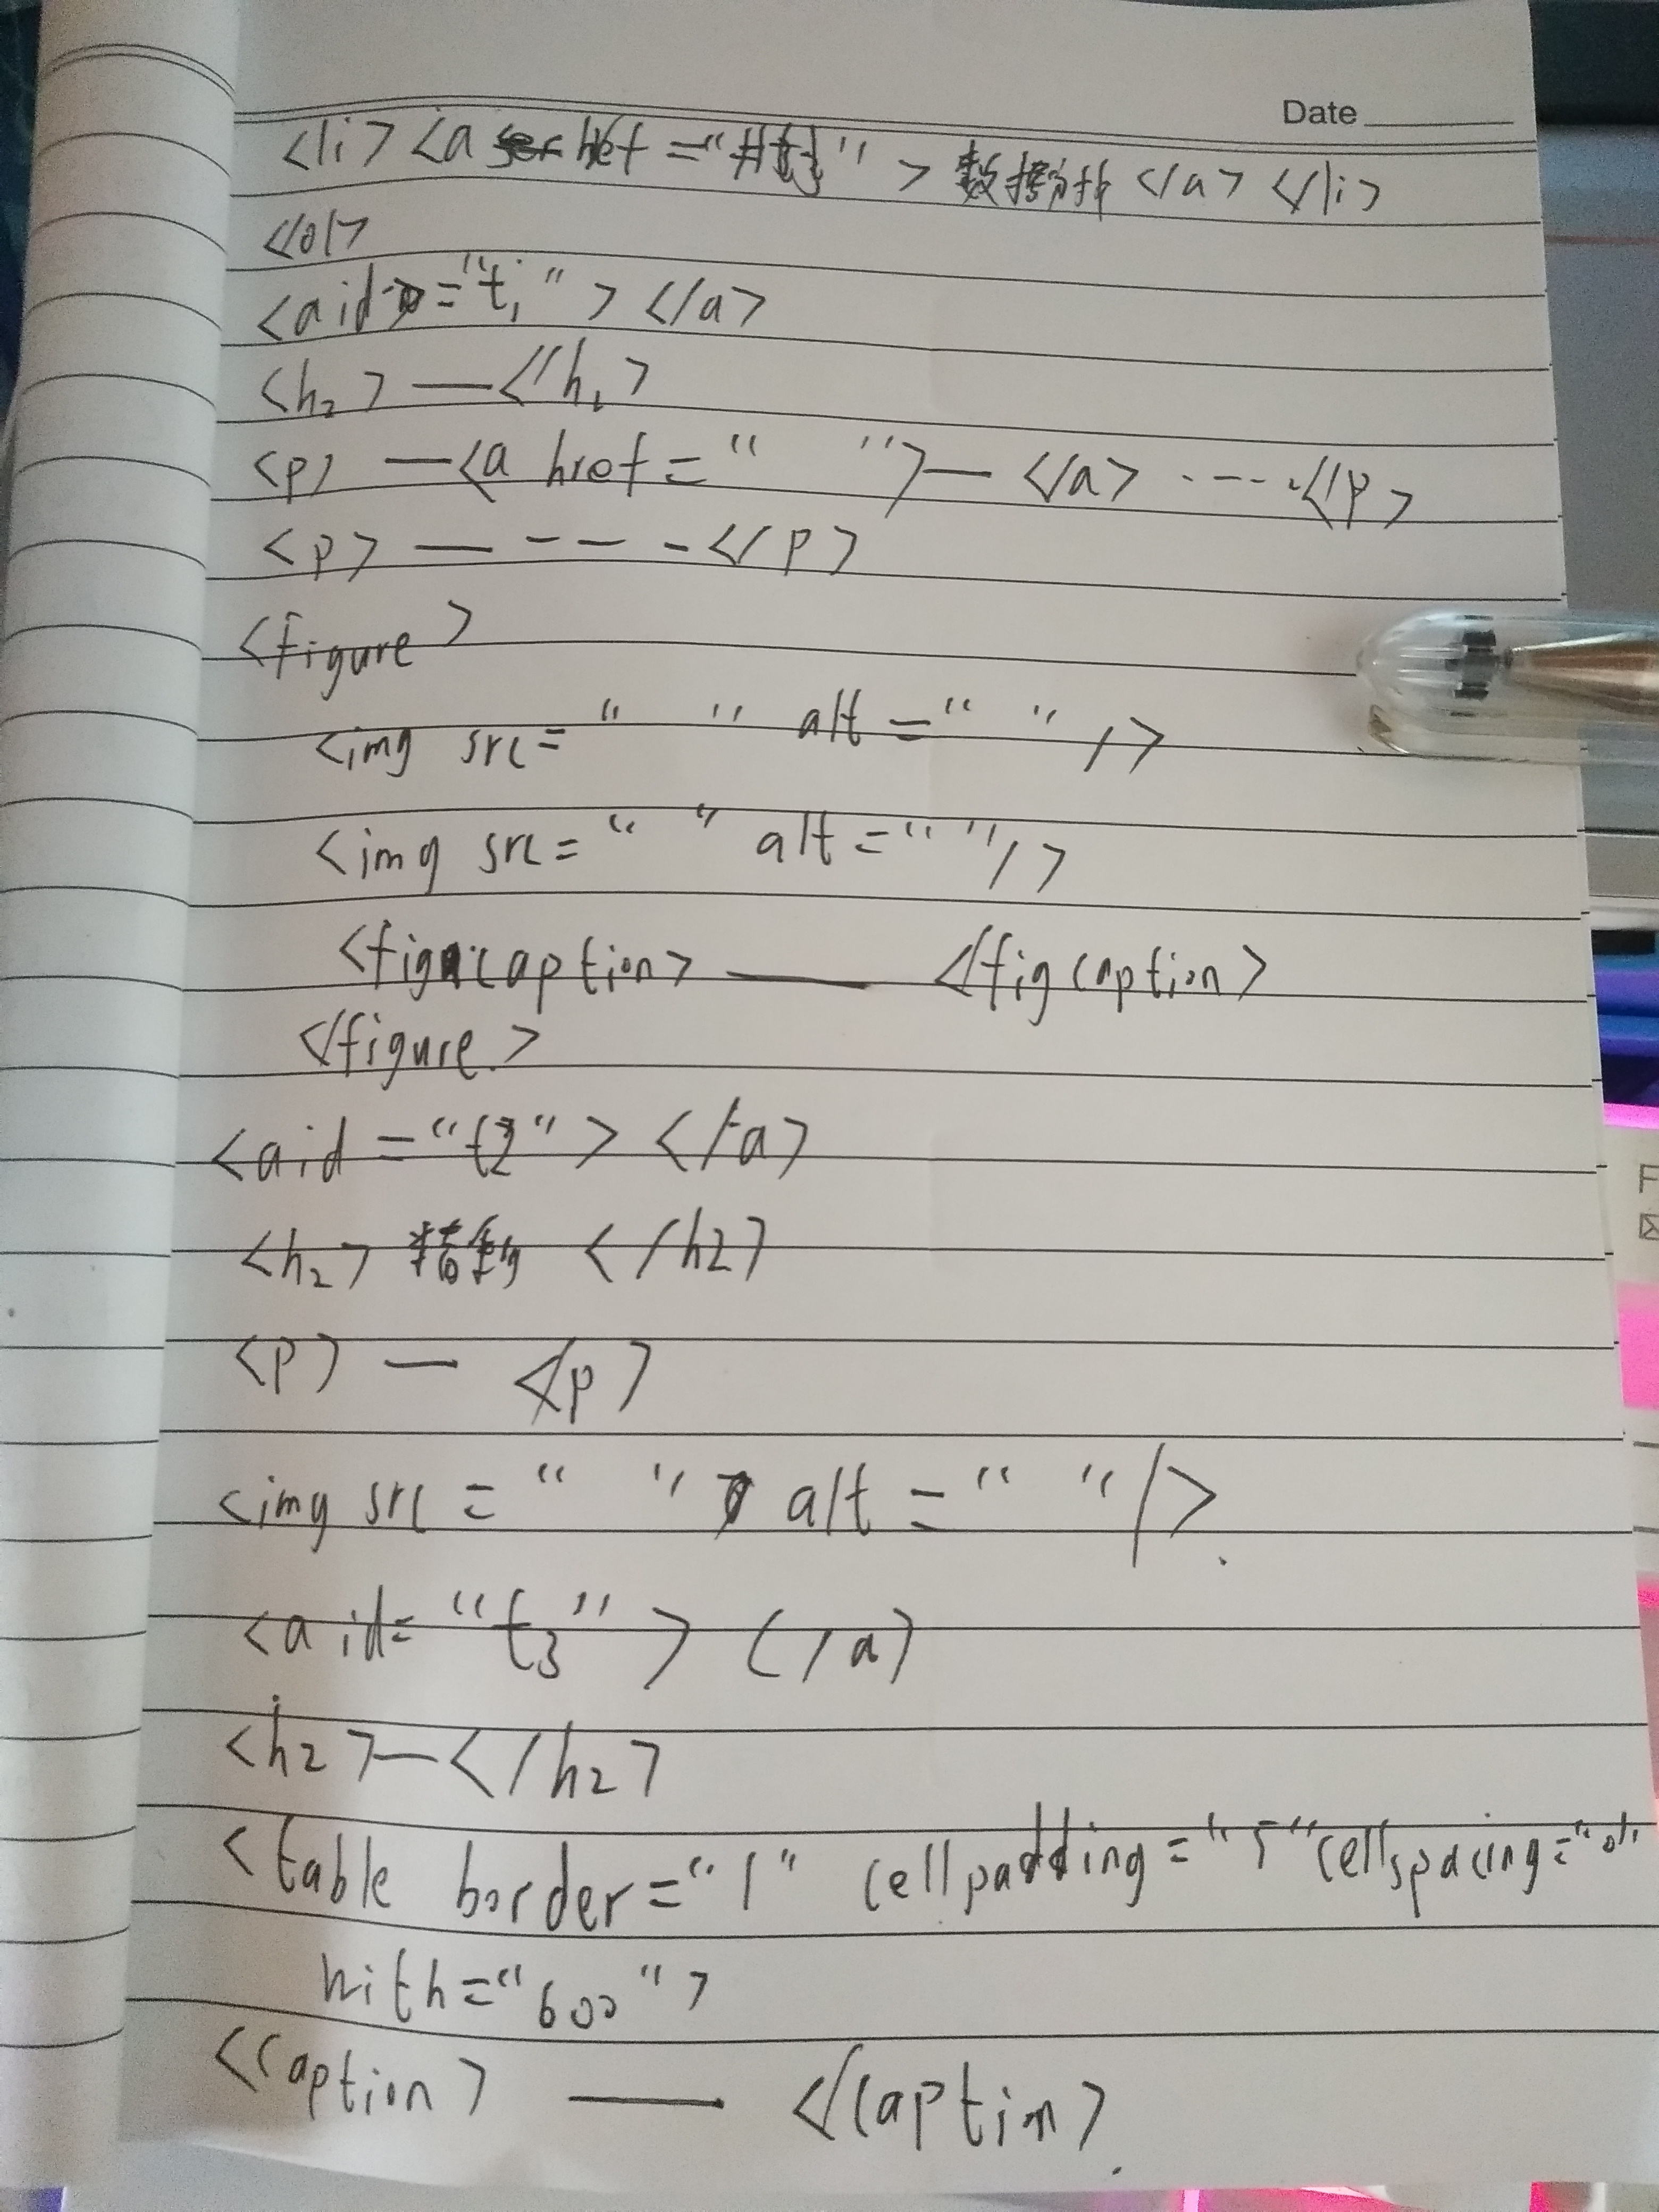 Date
<li> <a href ="#t3" > 数据分析 </a> </li>
</ol>
<a id="t1" > </a>
<h2> — </h1>
<p> — <a href = " "> — </a> ---- </p>
<p> — - - - </p>
<figure>
<img src= " " alt = " " />
<img src= " " alt = " "/>
<figcaption> — </figcaption>
</figure>
<a id = "t2" > </a>
<h2> </h2>
<p> — </p>
<img src = " " alt = " "/>
<a id= "t3" > </a>
<h2> — </h2>
<table border="1" cellpadding="5" cellspacing="0"
with="600">
<caption> — </caption>